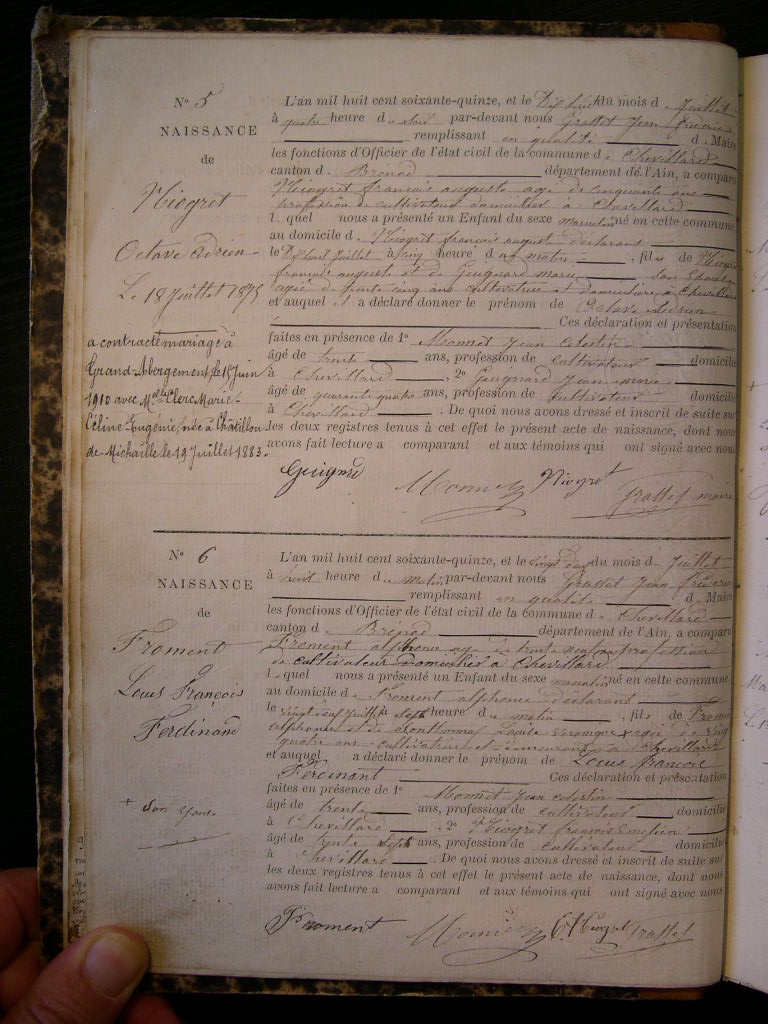 N° 5
NAISSANCE
de
Niogret
Octave Adrien
Le 18 Juillet 1875
a contracté mariage à
Grand-Abergement le 18 Juin
1910 avec Melle Clerc Marie-
Céline-Eugénie, née à Châtillon
de Michaille le 19 Juillet 1883.
L'an mil huit cent soixante-quinze, et le Dix huit du mois d Juillet
à quatre heure du soir par-devant nous Grasset Jean
remplissant en qualité d Maire
les fonctions d'Officier de l'état civil de la commune d Chevillard
canton d Brénod département de l'Ain, a comparu
Niogret francois auguste agé de cinquante ans
profession de cultivateur domicilié à Chevillard
l quel nous a présenté un Enfant du sexe masculin né en cette commune
au domicile d Niogret francois august declarant
le Dix huit Juillet à cinq heure du matin , fils de Niogret
francois auguste et de Guignard marie son Epouse
agée de trente cinq ans cultivatrice et domiciliée à Chevillard
et auquel il a déclaré donner le prénom de Octave Adrien
Ces déclaration et présentation
faites en présence de 1° Monnet Jean Celestin
âgé de trente ans, profession de cultivateur domicilié
à Chevillard , 2° Guignard Jean marie
âgé de quarante quatre ans, profession de cultivateur domicilié
à Chevillard . De quoi nous avons dressé et inscrit de suite sur
les deux registres tenus à cet effet le présent acte de naissance, dont nous
avons fait lecture a comparant et aux témoins qui ont signé avec nous
Guignard Monnet Niogret Grasset maire
N° 6
NAISSANCE
de
Froment
Louis François
Ferdinand
+ Son Epouse
L'an mil huit cent soixante-quinze, et le vingt deux du mois d Juillet
à huit heure du matin par-devant nous Grasset Jean
remplissant en qualité d Maire
les fonctions d'Officier de l'état civil de la commune d Chevillard
canton d Brénod département de l'Ain, a comparu
Froment alphonse agé de trente neuf an profession
de cultivateur domicilié à Chevillard
l quel nous a présenté un Enfant du sexe masculin né en cette commune
au domicile d Froment alphonse déclarant
le Juillet à sept heure du matin , fils de Froment
alphonse et de Louise veronique + agée de vingt
quatre ans cultivatrice et demeurant à Chevillard
et auquel a déclaré donner le prénom de Louis francois
Ferdinant Ces déclaration et présentation
faites en présence de 1° Monnet Jean Celestin
âgé de trente ans, profession de cultivateur domicilié
à Chevillard , 2° Niogret francois
âgé de trente sept ans, profession de cultivateur domicilié
à Chevillard . De quoi nous avons dressé et inscrit de suite sur
les deux registres tenus à cet effet le présent acte de naissance, dont nous
avons fait lecture a comparant et aux témoins qui ont signé avec nous
Froment Monnet Niogret Grasset